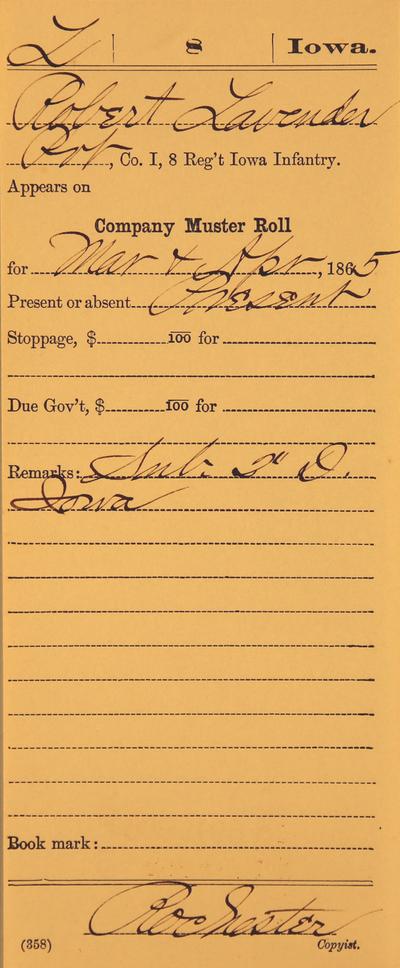 L | 8 | Iowa.
Robert Lavender
Pvt, Co. I, 8 Reg't Iowa Infantry.
Appears on
Company Muster Roll
for Mar & Apr, 1865
Present or absent Present
Stoppage, $ 100 for
Due Gov't, $ 100 for
Remarks: Sub. 2" D.
Iowa
Book mark:
Rochester
(358) Copyist.